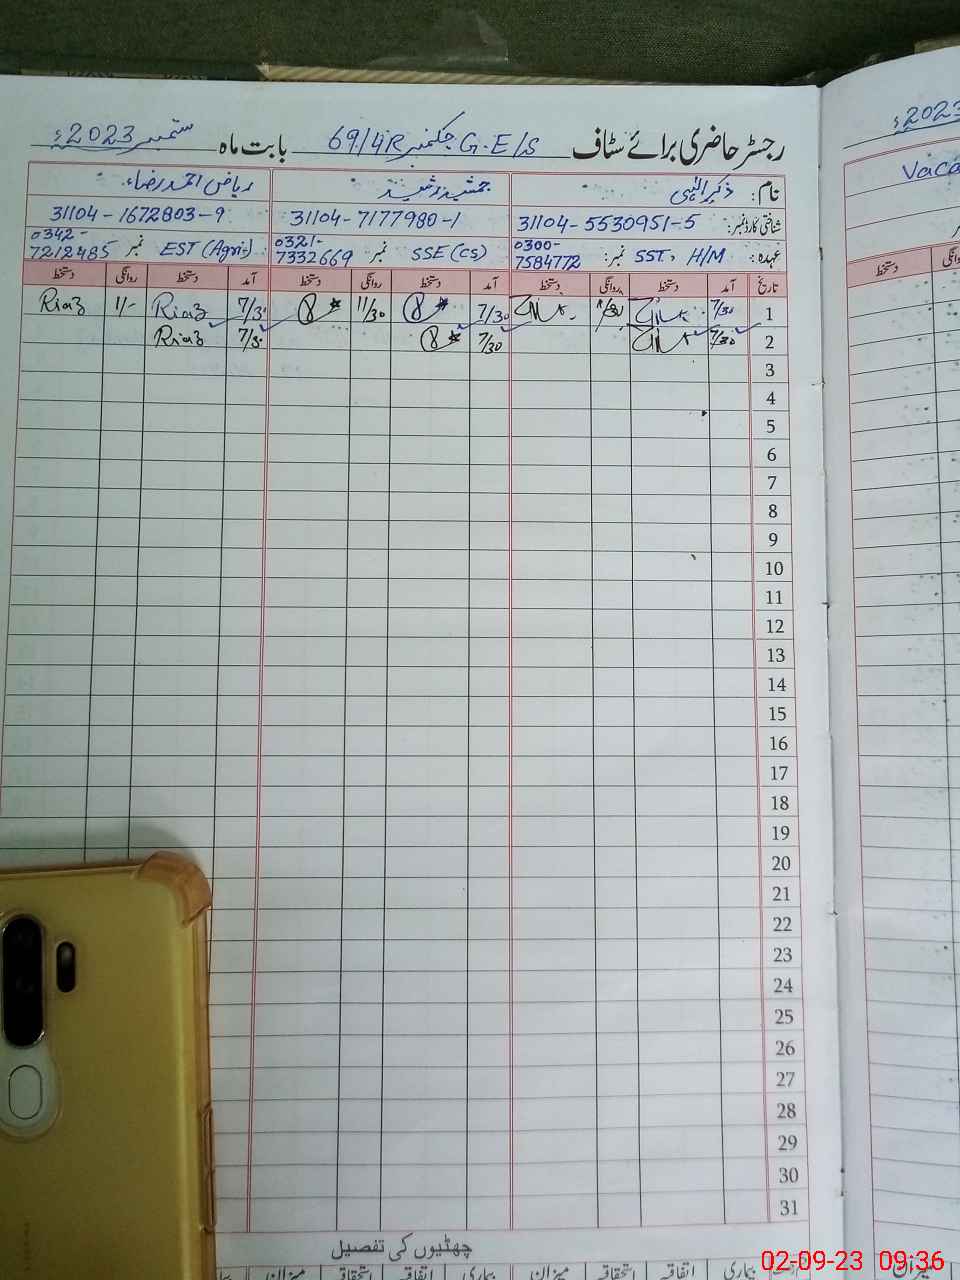 رجسٹر حاضری برائے سٹاف G.E/S چکنمبر 69/4R بابت ماہ ستمبر 2023ء
نام: ذکر الہی جمشید رشید ریاض احمد رضاء
شناختی کارڈ نمبر: 31104-5530951-5 31104-7177980-1 31104-1672803-9
عہدہ: SST, H/M نمبر: 0300-7584772 SSE (CS) نمبر 0321-7332669 EST (Agri) نمبر 0342-7212485
تاریخ آمد دستخط روانگی دستخط آمد دستخط روانگی دستخط آمد دستخط روانگی دستخط
1 7/30 7/30 11/30 7/30 Riaz 1/- Riaz
2 7/30 7/30 7/30 Riaz
3
4
5
6
7
8
9
10
11
12
13
14
15
16
17
18
19
20
21
22
23
24
25
26
27
28
29
30
31
چھٹیوں کی تفصیل
اتفاقیہ استحقاقیہ میزان بیماری اتفاقیہ استحقاقیہ میزان
2023
Vaca
دستخط
02-09-23 09:36